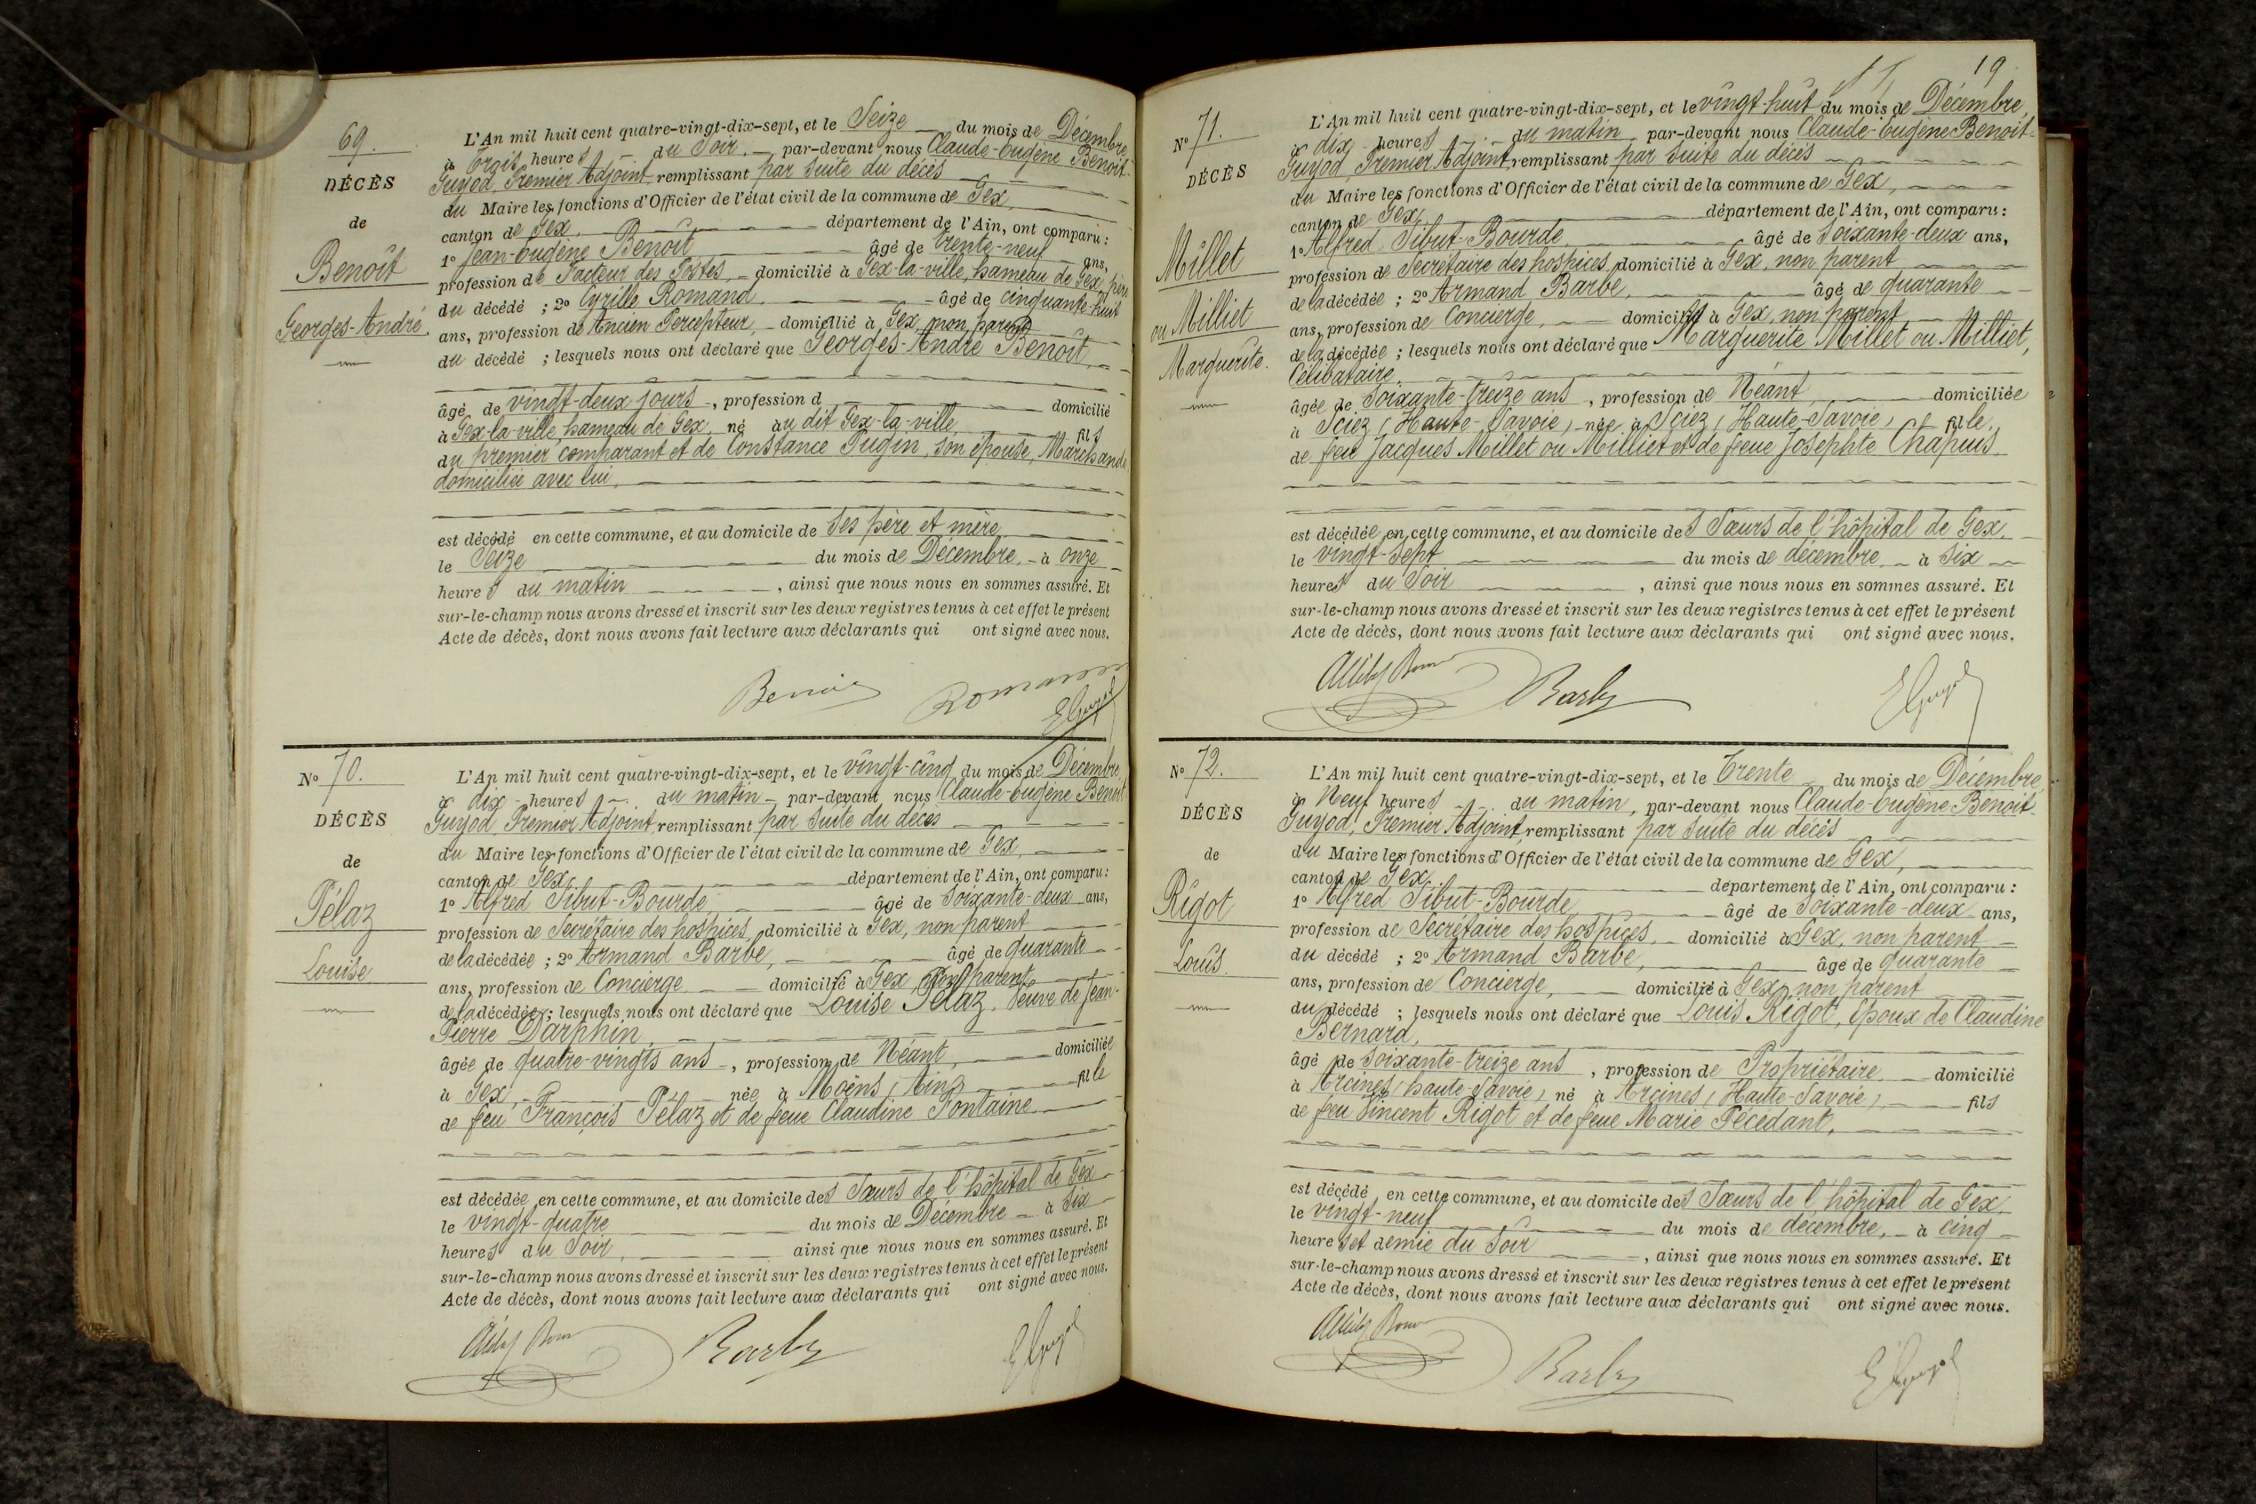 69.
DÉCÈS
de
Benoît
Georges-André.
L'An mil huit cent quatre-vingt-dix-sept, et le Seize du mois de Décembre,
à Trois heures du Soir. par-devant nous Claude-Eugène Benoit-
Guyod, Premier Adjoint, remplissant par suite du décès
du Maire les fonctions d'Officier de l'état civil de la commune de Gex,
canton de Gex, département de l'Ain, ont comparu :
1º Jean-Eugène Benoît âgé de trente-neuf ans,
profession de Facteur des Postes domicilié à Gex-la-ville, hameau de Gex, père
du décédé ; 2º Cyrille Romand, âgé de cinquante-huit
ans, profession de Ancien Percepteur, domicilié à Gex, non parent
du décédé ; lesquels nous ont déclaré que Georges-André Benoît,
âgé de vingt-deux jours, profession d domicilié
à Gex-la-ville, hameau de Gex, né au dit Gex-la-ville, fils
du premier comparant et de Constance Pugin, son épouse, Marchande
domiciliée avec lui.
est décédé en cette commune, et au domicile de ses père et mère,
le Seize du mois de Décembre, à onze
heures du matin, ainsi que nous nous en sommes assuré. Et
sur-le-champ nous avons dressé et inscrit sur les deux registres tenus à cet effet le présent
Acte de décès, dont nous avons fait lecture aux déclarants qui ont signé avec nous.
Benoit Romand
EGuyod
Nº 70.
DÉCÈS
de
Pélaz
Louise
L'An mil huit cent quatre-vingt-dix-sept, et le vingt-cinq du mois de Décembre,
à dix heures du matin par-devant nous Claude-Eugène Benoit
Guyod, Premier Adjoint, remplissant par suite du décès
du Maire les fonctions d'Officier de l'état civil de la commune de Gex,
canton de Gex, département de l'Ain, ont comparu :
1º Alfred Sibut-Bourde âgé de soixante-deux ans,
profession de Secrétaire des hospices, domicilié à Gex, non parent
de la décédée ; 2º Armand Barbe, âgé de quarante
ans, profession de Concierge domicilié à Gex non parent
de la décédée ; lesquels nous ont déclaré que Louise Pélaz, Veuve de Jean-
Pierre Darphin,
âgée de quatre-vingts ans, profession de Néant, domiciliée
à Gex, née à Moëns (Ain) fille
de feu François Pélaz et de feue Claudine Fontaine
est décédée en cette commune, et au domicile des Sœurs de l'hôpital de Gex
le vingt-quatre du mois de Décembre à six
heures du Soir, ainsi que nous nous en sommes assuré. Et
sur-le-champ nous avons dressé et inscrit sur les deux registres tenus à cet effet le présent
Acte de décès, dont nous avons fait lecture aux déclarants qui ont signé avec nous.
Barbe EGuyod
19
Nº 71.
DÉCÈS
Millet
ou Milliet
Marguerite.
L'An mil huit cent quatre-vingt-dix-sept, et le vingt-huit du mois de Décembre,
à dix heures du matin par-devant nous Claude-Eugène Benoit-
Guyod, Premier Adjoint, remplissant par suite du décès
du Maire les fonctions d'Officier de l'état civil de la commune de Gex,
canton de Gex, département de l'Ain, ont comparu :
1º Alfred Sibut-Bourde âgé de Soixante-deux ans,
profession de Secrétaire des hospices, domicilié à Gex, non parent
de la décédée ; 2º Armand Barbe, âgé de quarante
ans, profession de Concierge, domicilié à Gex, non parent
de la décédée ; lesquels nous ont déclaré que Marguerite Millet ou Milliet,
Célibataire,
âgée de Soixante-treize ans, profession de Néant, domiciliée
à Sciez (Haute-Savoie), née à Sciez (Haute-Savoie) fille
de feu Jacques Millet ou Milliet et de feue Josephte Chapuis.
est décédée en cette commune, et au domicile des Sœurs de l'hôpital de Gex,
le vingt-sept du mois de décembre à six
heures du Soir, ainsi que nous nous en sommes assuré. Et
sur-le-champ nous avons dressé et inscrit sur les deux registres tenus à cet effet le présent
Acte de décès, dont nous avons fait lecture aux déclarants qui ont signé avec nous.
Barbe EGuyod
Nº 72.
DÉCÈS
de
Rigot
Louis.
L'An mil huit cent quatre-vingt-dix-sept, et le Trente du mois de Décembre,
à Neuf heures du matin, par-devant nous Claude-Eugène Benoit-
Guyod, Premier Adjoint, remplissant par suite du décès
du Maire les fonctions d'Officier de l'état civil de la commune de Gex,
canton de Gex, département de l'Ain, ont comparu :
1º Alfred Sibut-Bourde âgé de Soixante-deux ans,
profession de Secrétaire des hospices, domicilié à Gex, non parent
du décédé ; 2º Armand Barbe, âgé de quarante
ans, profession de Concierge, domicilié à Gex, non parent
du décédé ; lesquels nous ont déclaré que Louis Rigot, époux de Claudine
Bernard,
âgé de soixante-treize ans, profession de Propriétaire domicilié
à Arcines (haute-Savoie), né à Arcines (Haute-Savoie), fils
de feu Vincent Rigot et de feue Marie Pécédant,
est décédé en cette commune, et au domicile des Sœurs de l'hôpital de Gex,
le vingt-neuf du mois de décembre, à cinq
heures et demie du Soir, ainsi que nous nous en sommes assuré. Et
sur-le-champ nous avons dressé et inscrit sur les deux registres tenus à cet effet le présent
Acte de décès, dont nous avons fait lecture aux déclarants qui ont signé avec nous.
Barbe EGuyod